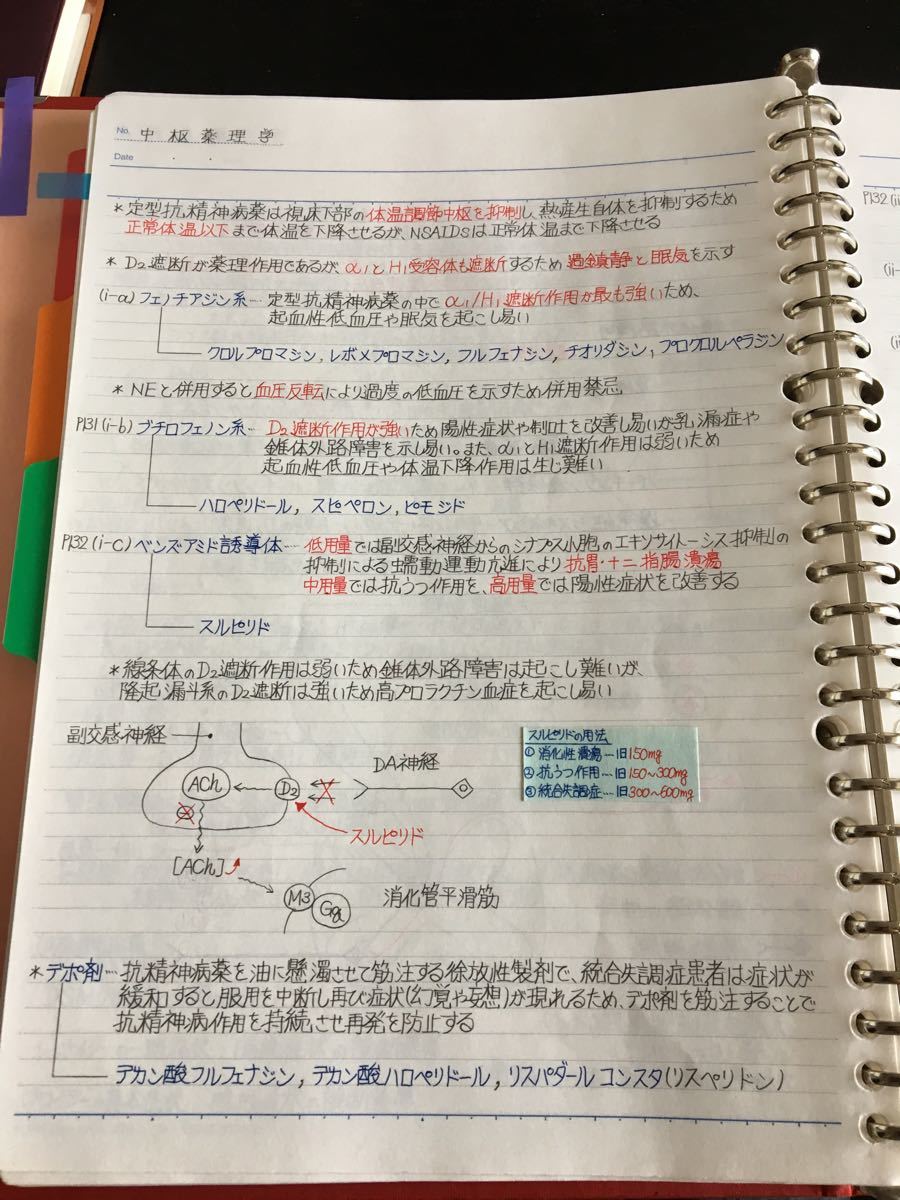 No. 中枢薬理学
Date
＊定型抗精神病薬は視床下部の体温調節中枢を抑制し、熱産生自体を抑制するため
正常体温以下まで体温を下降させるが、NSAIDsは正常体温まで下降させる
＊D₂遮断が薬理作用であるが、α₁とH₁受容体も遮断するため過鎮静と眠気を示す
(i-a)フェノチアジン系…定型抗精神病薬の中でα₁/H₁遮断作用が最も強いため、
起血性低血圧や眠気を起こし易い
クロルプロマジン，レボメプロマジン，フルフェナジン，チオリダジン，プロクロルペラジン
＊NEと併用すると血圧反転により過度の低血圧を示すため併用禁忌
P131(i-b)ブチロフェノン系…D₂遮断作用が強いため陽性症状や制吐を改善し易いが乳漏症や
錐体外路障害を示し易い。また、α₁とH₁遮断作用は弱いため
起血性低血圧や体温下降作用は生じ難い
ハロペリドール，スピペロン，ピモジド
P132(i-c)ベンズアミド誘導体…低用量では副交感神経からのシナプス小胞のエキソサイトーシス抑制の
抑制による蠕動運動亢進により抗胃・十二指腸潰瘍
中用量では抗うつ作用を、高用量では陽性症状を改善する
スルピリド
＊線条体のD₂遮断作用は弱いため錐体外路障害は起こし難いが、
隆起漏斗系のD₂遮断は強いため高プロラクチン血症を起こし易い
副交感神経
ACh
D₂
DA神経
スルピリド
[ACh]
M3
Gq
消化管平滑筋
スルピリドの用法
①消化性潰瘍…1日150mg
②抗うつ作用…1日150〜300mg
③統合失調症…1日300〜600mg
＊デポ剤…抗精神病薬を油に懸濁させて筋注する徐放性製剤で、統合失調症患者は症状が
緩和すると服用を中断し再び症状(幻覚や妄想)が現れるため、デポ剤を筋注することで
抗精神病作用を持続させ再発を防止する
デカン酸フルフェナジン，デカン酸ハロペリドール，リスパダール コンスタ(リスペリドン)
P132(ii
(ii-
(ii